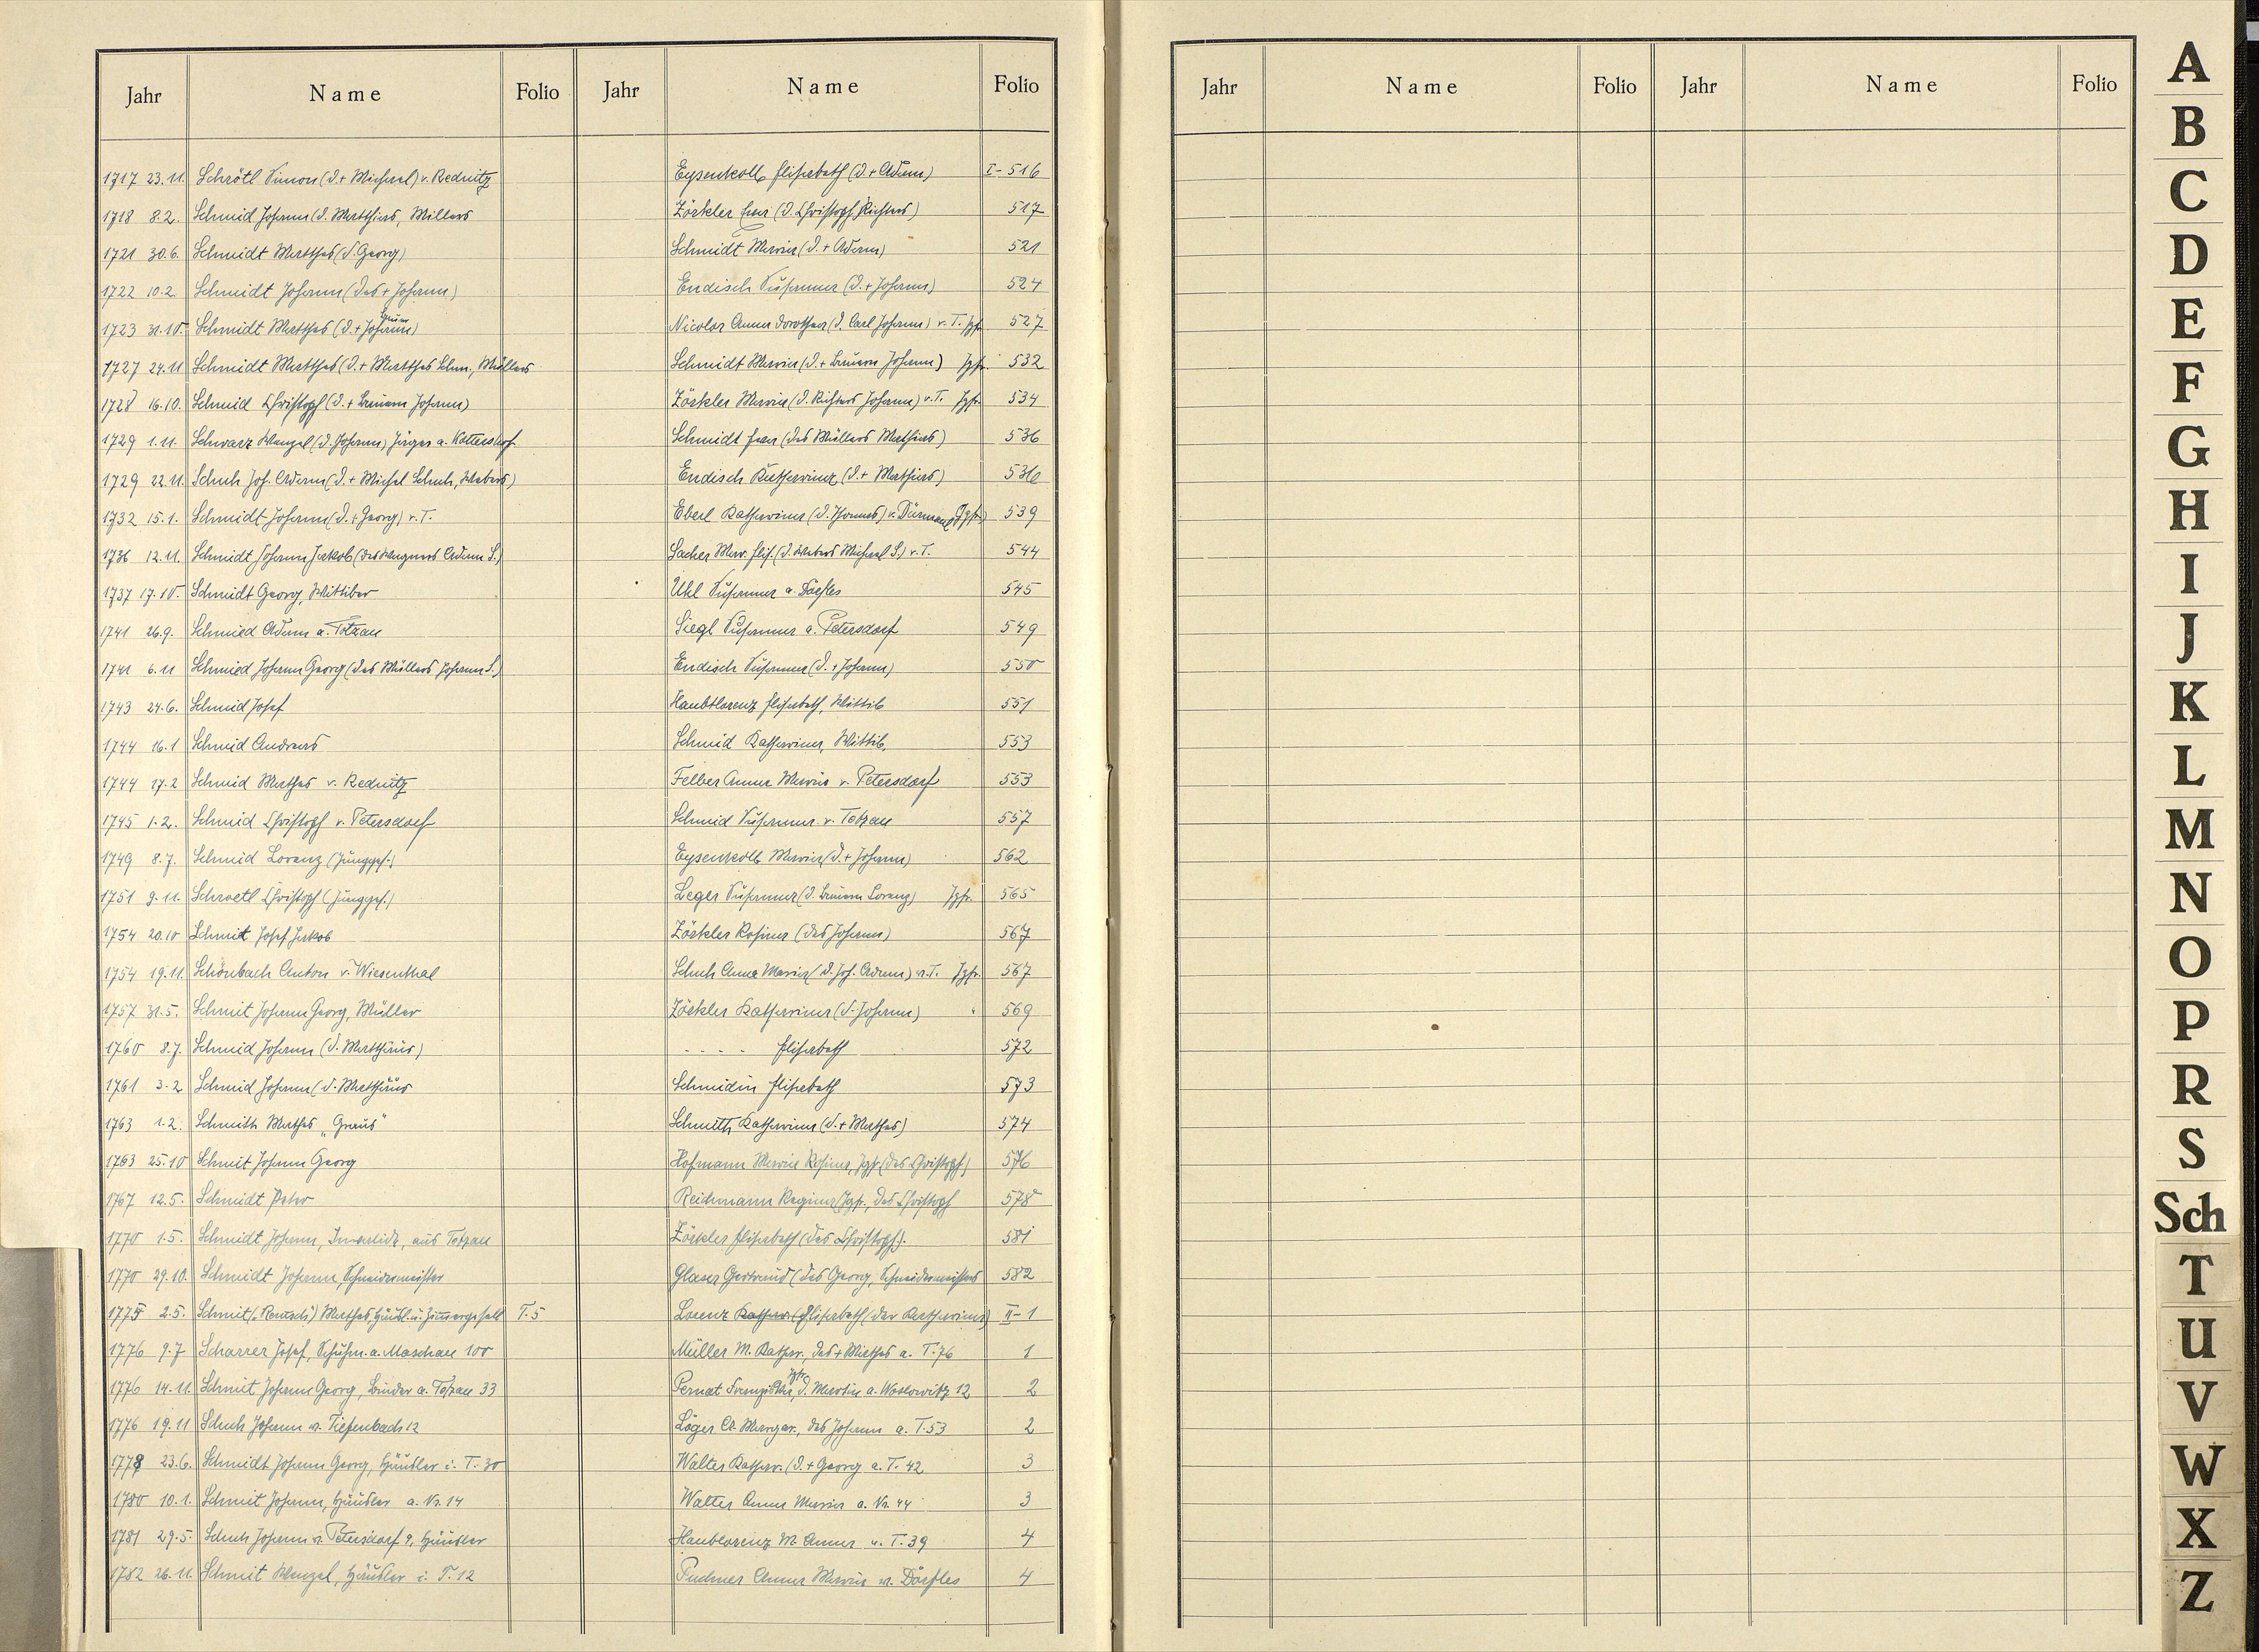 Jahr Name Folio Jahr Name Folio
1717 23.11. Schrötl Simon (d.+ Michael) v. Rednitz Eysenkolb Elisabeth (d.+ Adam) I-516
1718 8.2. Schmid Johann (d. Matthias, Müllers Zörkler Eva (d. Christoph, Richters) 517
1721 30.6. Schmidt Matthes (d. Georg) Schmidt Maria (d.+ Adam) 521
1722 10.2. Schmidt Johann (des + Johann) Endisch Susanna (d.+ Johann) 524
1723 31.10. Schmidt Matthes (d.+ Johann) Nicolor Anna Dorothea (d. Carl Johann) v. T. Jgfr. 527
1727 24.11 Schmidt Matthes (d.+ Matthes Schm., Müllers Schmidt Maria (d.+ Bauern Johann) Jgfr. 532
1728 16.10. Schmid Christoph (d.+ Bauern Johann) Zörkler Maria (d. Richters Johann) v. T. Jgfr. 534
1729 1.11. Schwarz Wenzel (d. Johann) Jäger a. Kottershof Schmidt Eva (des Müllers Mathias) 536
1729 22.11. Schuh Joh. Adam (d.+ Michel Schuh, Webers) Endisch Katharina (d.+ Mathias) 536
1732 15.1. Schmidt Johann (d.+ Georg) v. T. Eberl Katharina (d. Thomas) v. Dürmaul Jgfr.) 539
1736 12.11. Schmidt Johann Jakob (des Wagners Adam S.) Sacher Mar. Elis. (d. Webers Michael S.) v. T. 544
1737 17.10. Schmidt Georg, Wittiber Uhl Susanna a. Döfles 545
1741 26.9. Schmied Adam a. Totzau Siegl Susanna a. Petersdorf 549
1741 6.11 Schmied Johann Georg (des Müllers Johann S.) Endisch Susanna (d.+ Johann) 550
1743 24.6. Schmid Josef Haubtlorenz Elisabeth, Wittib 551
1744 16.1 Schmid Andreas Schmid Katharina, Wittib. 553
1744 17.2 Schmid Mathes v. Rednitz Felber Anna Maria v. Petersdorf 553
1745 1.2. Schmid Christoph v. Petersdorf Schmid Susanna v. Totzau 557
1749 8.7. Schmid Lorenz (Junggs.) Eysenkolb Maria (d.+ Johann) 562
1751 9.11. Schroetl Christoph (Junggs.) Leger Susanna (d. Bauern Lorenz) Jgfr. 565
1754 20.10 Schmit Josef Jakob Zörkler Rosina (des Johann) 567
1754 19.11. Schönbach Anton v. Wiesenthal Schuh Anna Maria (d. Joh. Adam) v. T. Jgfr. 567
1757 31.5. Schmit Johann Georg, Müller Zörkler Katharina (d. Johann) " 569
1760 8.7. Schmid Johann (d. Matthäus) - - - - Elisabeth 572
1761 3.2 Schmid Johann (d. Matthäus Schmidin Elisabeth 573
1763 1.2. Schmith Mathes "Graus" Schmitth Katharina (d.+ Mathes) 574
1763 25.10 Schmit Johann Georg Hofmann Maria Rosina, Jgfr. (des Christoph) 576
1767 12.5. Schmidt Peter Reichmann Regina Jgfr., des Christoph 578
1770 1.5. Schmidt Johann, Invalide, aus Totzau Zörkler Elisabeth (des Christoph). 581
1770 29.10. Schmidt Johann, Schneidermeister Glaser Gertraud (des Georg, Schneidermeisters 582
1775 2.5. Schmit ("Rausch") Mathes, Häusl. u. Zimmergesell T. 5 Lorenz Kathar. (Elisabeth (der Katharina) II-1
1776 9.7 Scharrer Josef, Schuhm. a. Maschau 100 Müller M. Kathar., des + Mathes a. T. 76 1
1776 14.11. Schmit Johann Georg, Binder a. Totzau 33 Pernat Franziska, Jgfr. d. Martin a. Woslowitz 12 2
1776 19.11 Schuh Johann v. Tiefenbach 12 Löger A. Margar., des Johann a. T. 53 2
1778 23.6. Schmidt Johann Georg, Häusler i. T. 30 Walter Kathar. (d.+ Georg a. T. 42 3
1780 10.1. Schmit Johann, Häusler a. Nr. 14 Walter Anna Maria a. Nr. 44 3
1781 29.5. Schuh Johann v. Petersdorf 9, Häusler Haublorenz M. Anna v. T. 39 4
1782 26.11. Schmit Wenzel, Häusler i. T. 12 Puchner Anna Maria v. Dörfles 4
Jahr Name Folio Jahr Name Folio
A
B
C
D
E
F
G
H
I
J
K
L
M
N
O
P
R
S
Sch
T
U
V
W
X
Z